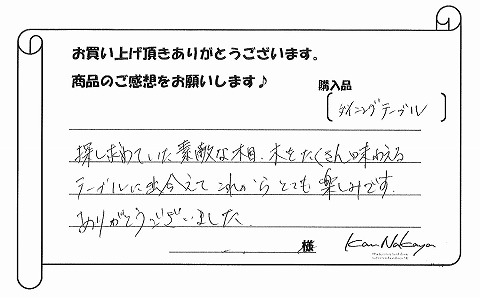 お買い上げ頂きありがとうございます。
商品のご感想をお願いします♪
購入品
ダイニングテーブル
探し求めていた素敵な木目、木をたくさん味わえる
テーブルに出会えて これから とても 楽しみです.
ありがとうございました
様
Kan Nakaya